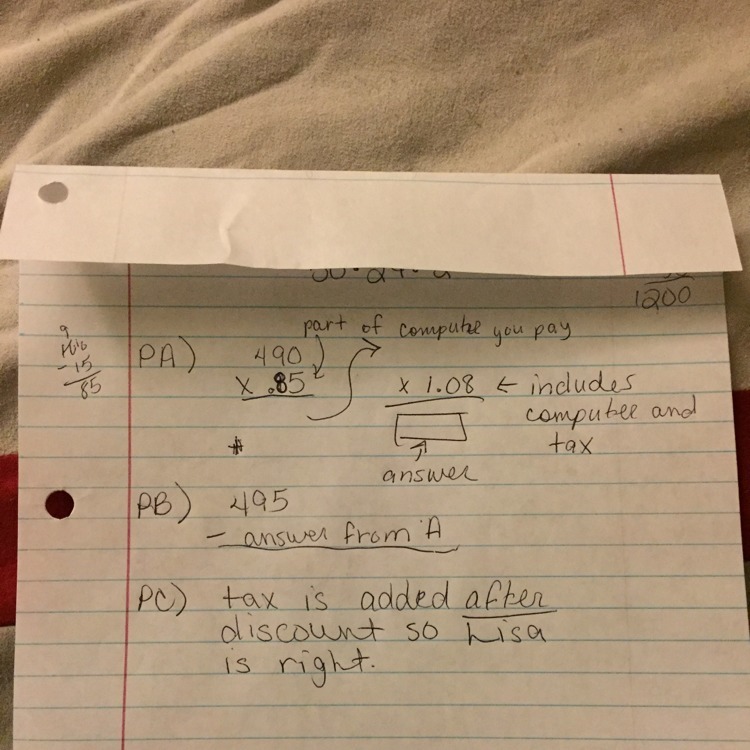 1200
part of compute you pay
9
- 15
85
PA) 490
x .85
x 1.08 ← includes
computer and
tax
answer
PB) 495
- answer from A
PC) tax is added after
discount so Lisa
is right.